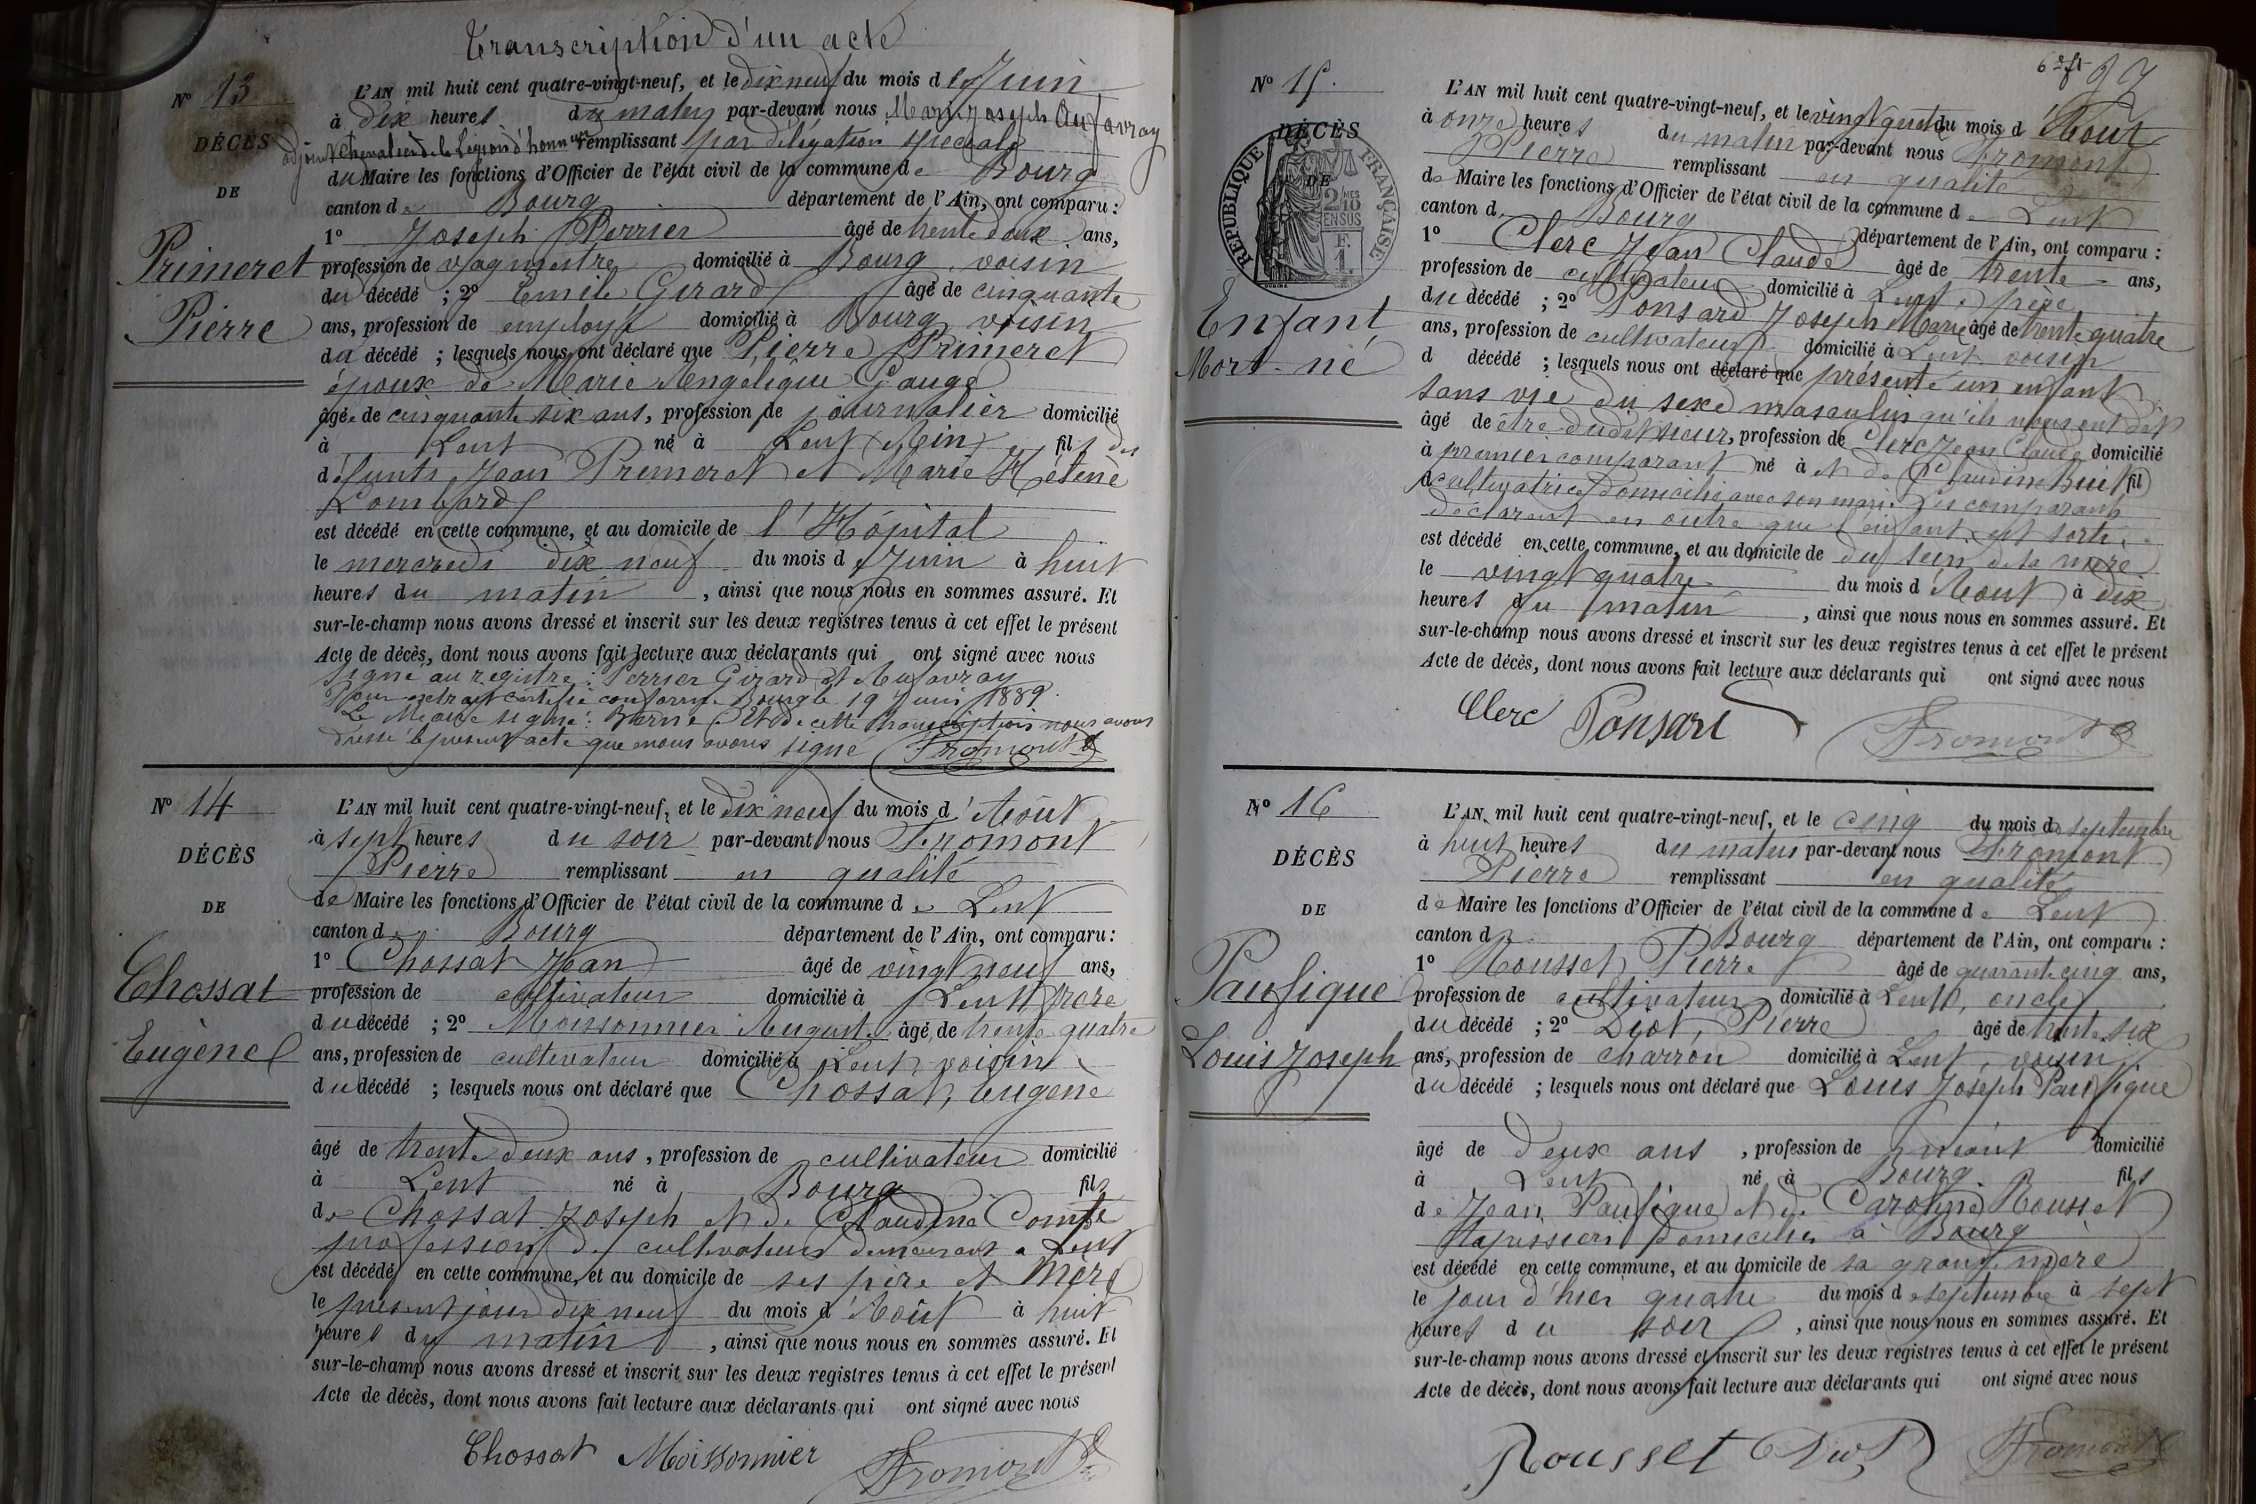 Transcription d'un acte
N° 13
DÉCÈS
DE
Primeret
Pierre
L'AN mil huit cent quatre-vingt-neuf, et le dix neuf du mois de Juin
à dix heures du matin par-devant nous Marie Joseph Aufavray
adjoint Chevalier de la Légion d'honneur remplissant par délégation spéciale
du Maire les fonctions d'Officier de l'état civil de la commune de Bourg
canton de Bourg département de l'Ain, ont comparu :
1° Joseph Perrier âgé de trente deux ans,
profession de vaguemestre domicilié à Bourg voisin
du décédé ; 2° Emile Girard âgé de cinquante
ans, profession de employé domicilié à Bourg voisin
du décédé ; lesquels nous ont déclaré que Pierre Primeret
époux de Marie Angélique Gauge
âgé de cinquante six ans, profession de journalier domicilié
à Lent né à Lent (Ain) fils des
défunts Jean Primeret et Marie Hélène
Lombard
est décédé en cette commune, et au domicile de l'Hôpital
le mercredi dix neuf du mois de Juin à huit
heures du matin, ainsi que nous nous en sommes assuré. Et
sur-le-champ nous avons dressé et inscrit sur les deux registres tenus à cet effet le présent
Acte de décès, dont nous avons fait lecture aux déclarants qui ont signé avec nous
Signé au registre : Perrier Girard et Aufavray
Pour extrait certifié conforme Bourg le 19 Juin 1889.
Le Maire signé : Et de cette transcription nous avons
dressé le présent acte que nous avons signé Fromont
N° 14
DÉCÈS
DE
Chossat
Eugène
L'AN mil huit cent quatre-vingt-neuf, et le dix neuf du mois d'Août
à sept heures du soir par-devant nous Fromont
Pierre remplissant en qualité
de Maire les fonctions d'Officier de l'état civil de la commune de Lent
canton de Bourg département de l'Ain, ont comparu :
1° Chossat Jean âgé de vingt neuf ans,
profession de cultivateur domicilié à Lent frère
du décédé ; 2° Moissonnier August. âgé de trente quatre
ans, profession de cultivateur domicilié à Lent voisin
du décédé ; lesquels nous ont déclaré que Chossat, Eugène
âgé de trente deux ans, profession de cultivateur domicilié
à Lent né à Bourg fils
de Chossat Joseph et de Claudine Comte
profession de cultivateurs demeurant à Lent
est décédé en cette commune, et au domicile de ses père et mère
le présent jour dix neuf du mois d'Août à huit
heures du matin, ainsi que nous nous en sommes assuré. Et
sur-le-champ nous avons dressé et inscrit sur les deux registres tenus à cet effet le présent
Acte de décès, dont nous avons fait lecture aux déclarants qui ont signé avec nous
Chossat Moissonnier Fromont
N° 15.
DÉCÈS
DE
RÉPUBLIQUE FRANÇAISE
2 MES 10 EN SUS
F. 1.
Enfant
Mort-né
L'AN mil huit cent quatre-vingt-neuf, et le vingt quatre du mois d'Août
à onze heures du matin par-devant nous Fromont
Pierre remplissant en qualité
de Maire les fonctions d'Officier de l'état civil de la commune de Lent
canton de Bourg département de l'Ain, ont comparu :
1° Clerc Jean Claude âgé de trente ans,
profession de cultivateur domicilié à Lent père
du décédé ; 2° Ponsard Joseph Marie âgé de trente quatre
ans, profession de cultivateur domicilié à Lent voisin
d décédé ; lesquels nous ont déclaré que présenté un enfant
sans vie du sexe masculin qu'ils nous ont dit
âgé de être dudit sieur, profession de Clerc Jean Claude domicilié
à premier comparant né à et de Claudine Buit fil
d cultivatrice domiciliée avec son mari. Les comparants
déclarent en outre que l'enfant est sorti
est décédé en cette commune, et au domicile de du sein de sa mère
le vingt quatre du mois d'Août à dix
heures du matin, ainsi que nous nous en sommes assuré. Et
sur-le-champ nous avons dressé et inscrit sur les deux registres tenus à cet effet le présent
Acte de décès, dont nous avons fait lecture aux déclarants qui ont signé avec nous
Clerc Ponsard Fromont
N° 16
DÉCÈS
DE
Paufique
Louis Joseph
L'AN mil huit cent quatre-vingt-neuf, et le cinq du mois de septembre
à huit heures du matin par-devant nous Fromont
Pierre remplissant en qualité
de Maire les fonctions d'Officier de l'état civil de la commune de Lent
canton de Bourg département de l'Ain, ont comparu :
1° Rousset Pierre âgé de quarante cinq ans,
profession de cultivateur domicilié à Lent, oncle
du décédé ; 2° Diot, Pierre âgé de trente six
ans, profession de charron domicilié à Lent, voisin
du décédé ; lesquels nous ont déclaré que Louis Joseph Paufique
âgé de deux ans, profession de néant domicilié
à Lent né à Bourg fils
de Jean Paufique et de Caroline Rousset
tapissiers domiciliés à Bourg
est décédé en cette commune, et au domicile de sa grand mère
le jour d'hier quatre du mois de septembre à sept
heures du soir, ainsi que nous nous en sommes assuré. Et
sur-le-champ nous avons dressé et inscrit sur les deux registres tenus à cet effet le présent
Acte de décès, dont nous avons fait lecture aux déclarants qui ont signé avec nous
Rousset Diot Fromont